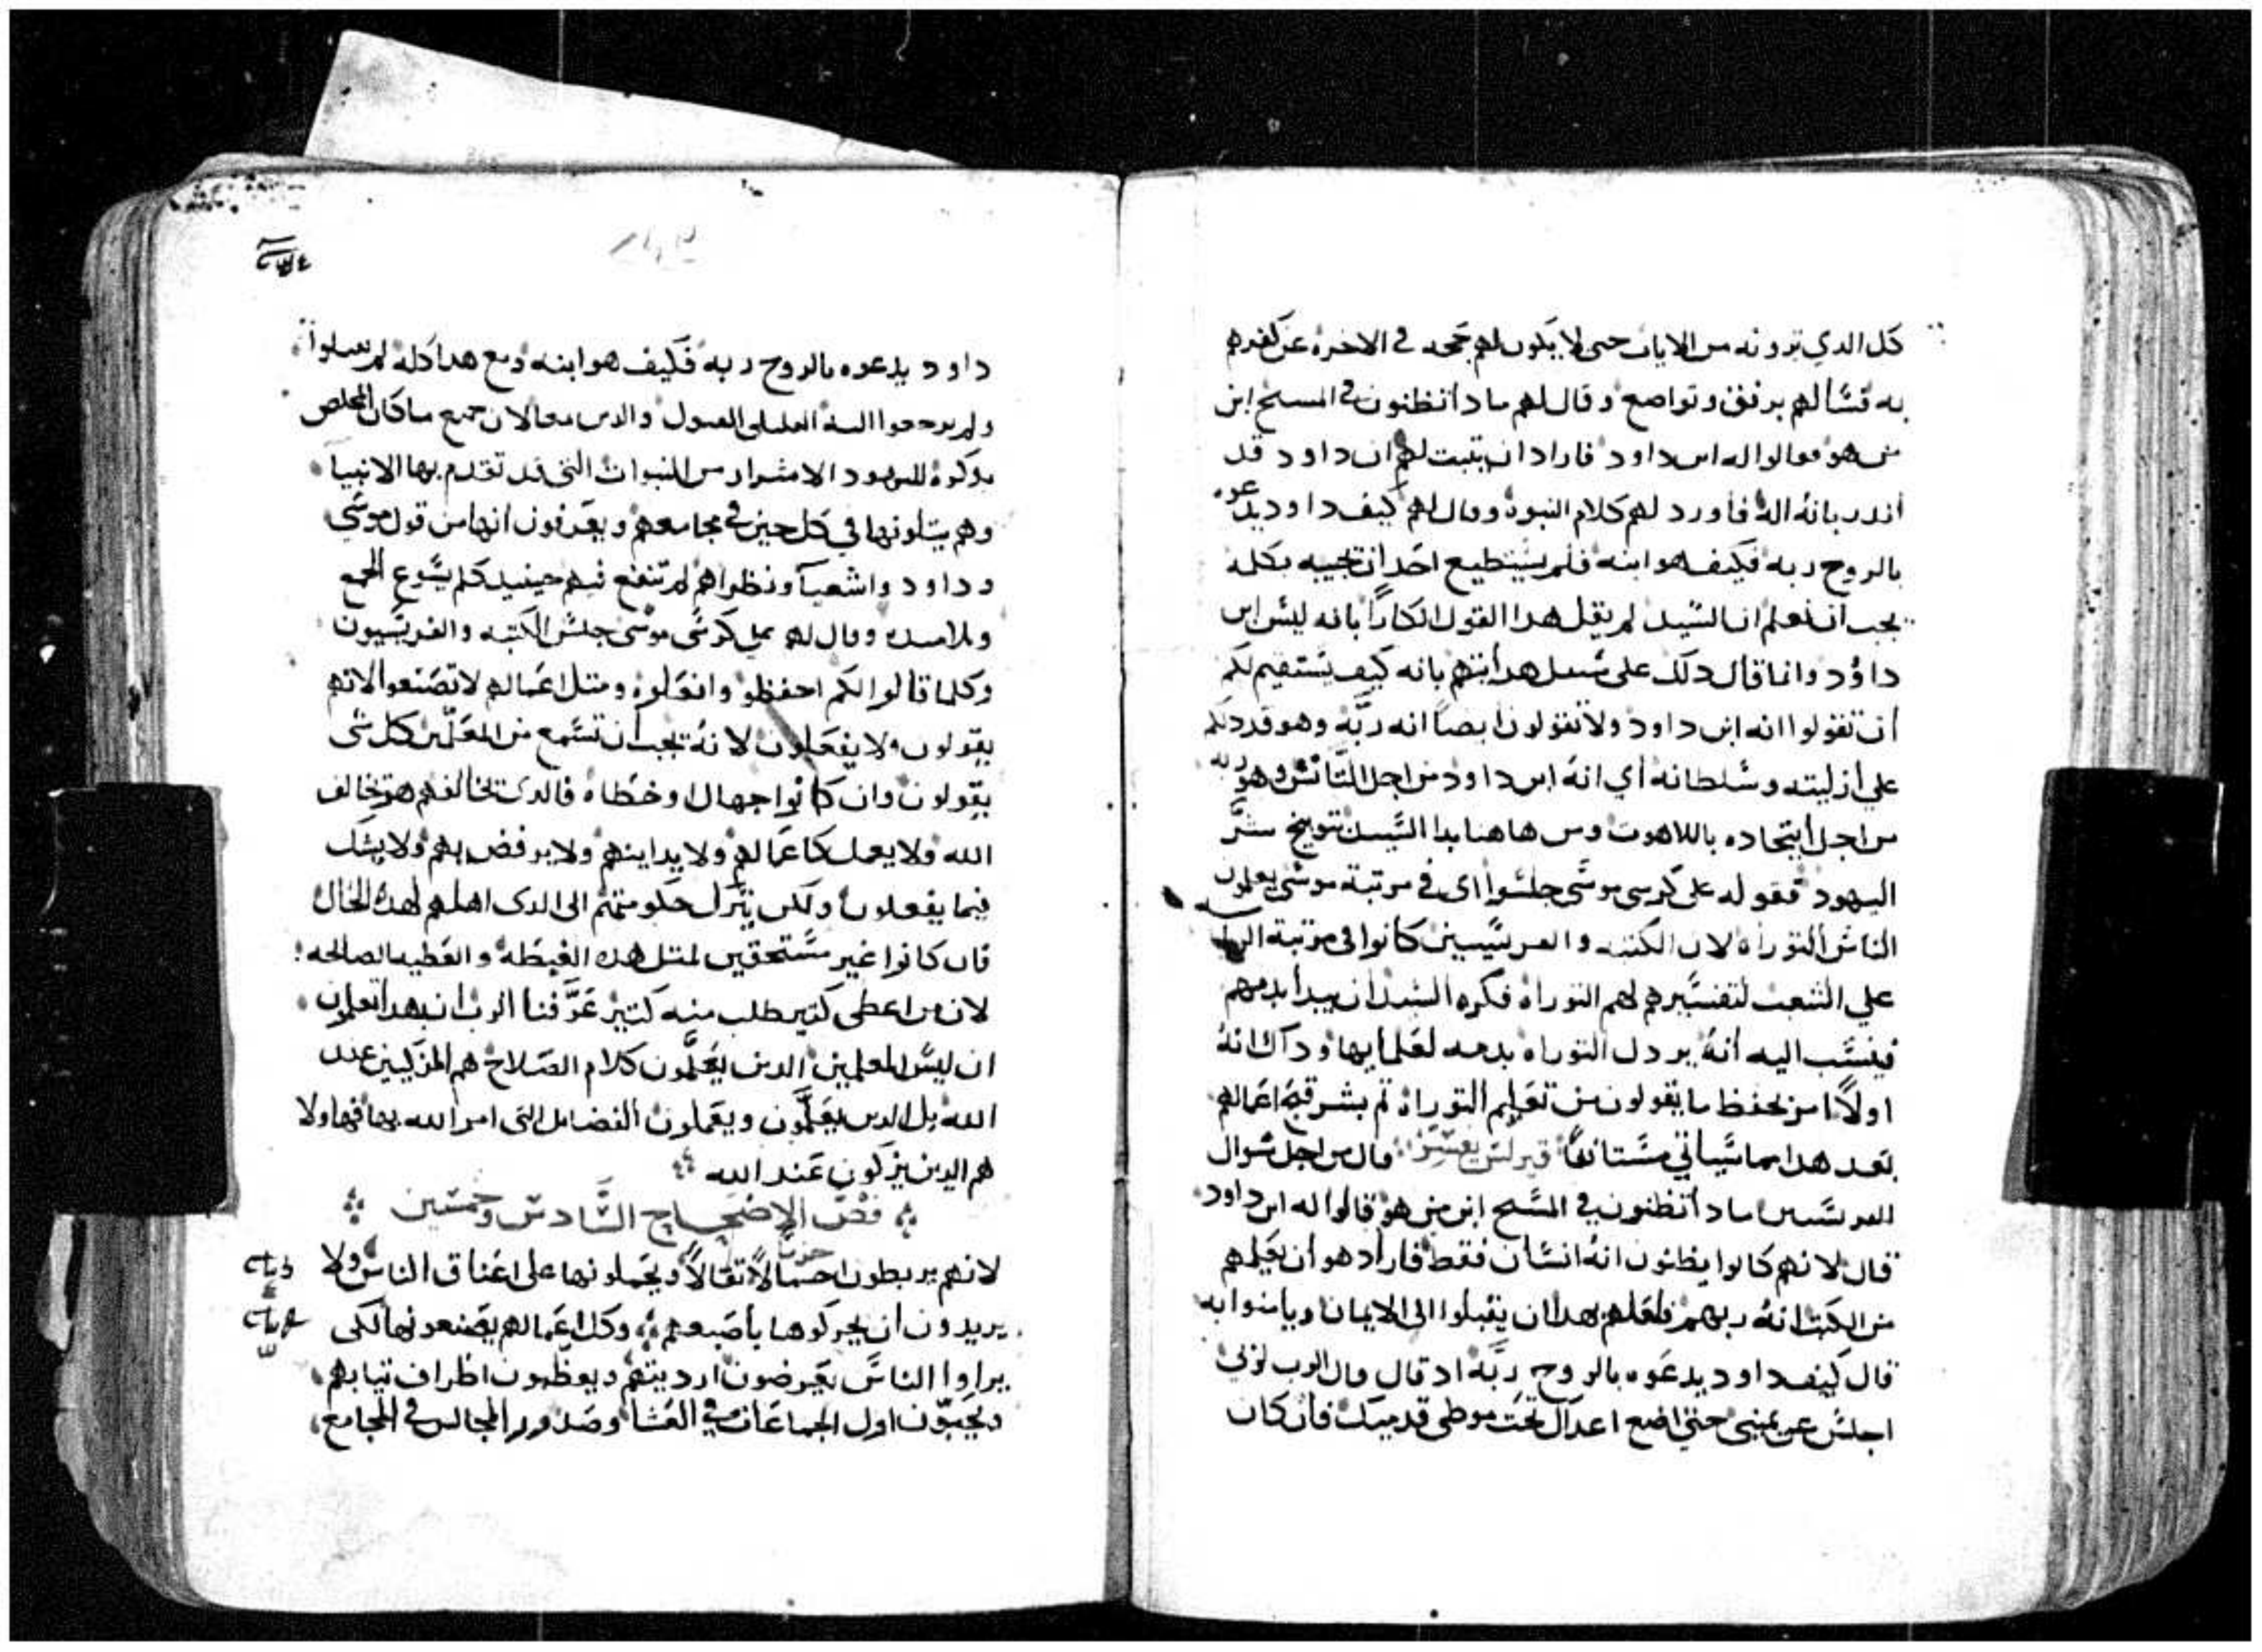 كل الدي ترونه من الايات حتى لا يكون لهم حجه في الاخره عن كفرهم
به فسالهم برفق وتواضع وقال لهم مادا تظنون في المسيح ابن
من هو فقالوا له ابن داود فاراد ان يتبت لهم ان داود قد
اندر بانه اله فاورد لهم كلام النبوه وقال لهم كيف داود يدعوه
بالروح ربه فكيف هو ابنه فلم يستطيع احد ان تجيبه بكلمه
يجب ان نعلم ان السيد لم يقل هدا القول انكارًا بانه ليس ابن
داود وانما قال دلك على سبيل هدايتهم بانه كيف يستقيم لكم
ان تقولوا انه ابن داود ولا تقولون ايضاً انه ربه وهو قد دلكم
علي ازليته وسلطانه اي انه ابن داود من اجل التانس وهو ربه
من اجل ايتحاده باللاهوت ومن هاهنا بدا السيد بتوبيخ
اليهود فقوله على كرسي موسى جلسوا اى في مرتبة موسى يعلمون
الناس التوراه لان الكتبه والفريسيين كانوا في مرتبة
علي الشعب لتفسيرهم لهم التوراه فكره السيد ان يبدا بدمهم
فينسب اليه انه يردل التوراه بدمه لعلمايها ودلك انه
اولاً امر بحفظ ما يقولون من تعليم التوراه تم بشر قبح اعمالهم
بعد هدا بما سياتي مستانفاً قيرلس يفسر قال من اجل سوال
الفريسيين مادا تظنون في المسيح ابن من هو قالوا له ابن داود
قال لانهم كانوا يظنون انه انسان فقط فاراد هو ان يعلمهم
من الكتب انه ربهم فلعلهم بهدا ان يقبلوا الى الايمان ويامنوا به
قال كيف داود يدعوه بالروح ربه اد قال قال الرب لربي
اجلس عن يمينى حتي اضع اعداك تحت موطى قدميك فان كان
داود يدعوه بالروح ربه فكيف هو ابنه ومع هدا كله لم
ولم والدين جميع ما كان المخلص
يدكره لليهود الاشرار من النبوات التي قد تقدم بها الانبيا
وهم يتلونها في كل حين في مجامعهم ويعرفون انها من قول موسى
وداود واشعيا ونظراهم لم تنفع فيهم حينيد كلم يسوع الجمع
وتلاميده وقال لهم على كرسى موسى جلس الكتبه والفريسيون
وكلما قالوا لكم احفظوه وافعلوه ومتل اعمالهم لا تصنعوا لانهم
يقولون ولا يفعلون لانه يجب ان نسمع من المعلمين كل شى
يقولون وان كانوا جهال او خطاه فالدى تخالفهم هو تخالف
الله ولا يعمل كاعمالهم ولا يداينهم ولا يرفض بهم ولا يشك
فيما يفعلون ولكن يترك حكومتهم الى الدى اهلهم لهده الحال
فان كانوا غير مستحقين لمتل هده الغبطه والعطيه الصالحه
لان من اعطى كتير طلب منه كتير عرفنا الرب ان بهدا تعلمون
ان ليس المعلمين الدين يعلمون كلام الصلاح هم المزكيين عند
الله بل الدين يعلمون ويعملون الفضايل التى امر الله بها فهاولا
هم الدين يزكون عند الله
فص الاصحاح السادس وخمسين
لانهم يربطون احمالاً تقالاً ويحملونها على اعناق الناس ولا
يريدون ان يحركوها باصبعهم وكل اعمالهم يصنعونها لكى
يراوا الناس يعرضون ارديتهم ويعظمون اطراف تيابهم
ويحبون اول الجماعات في العشا وصدور المجالس في المجامع